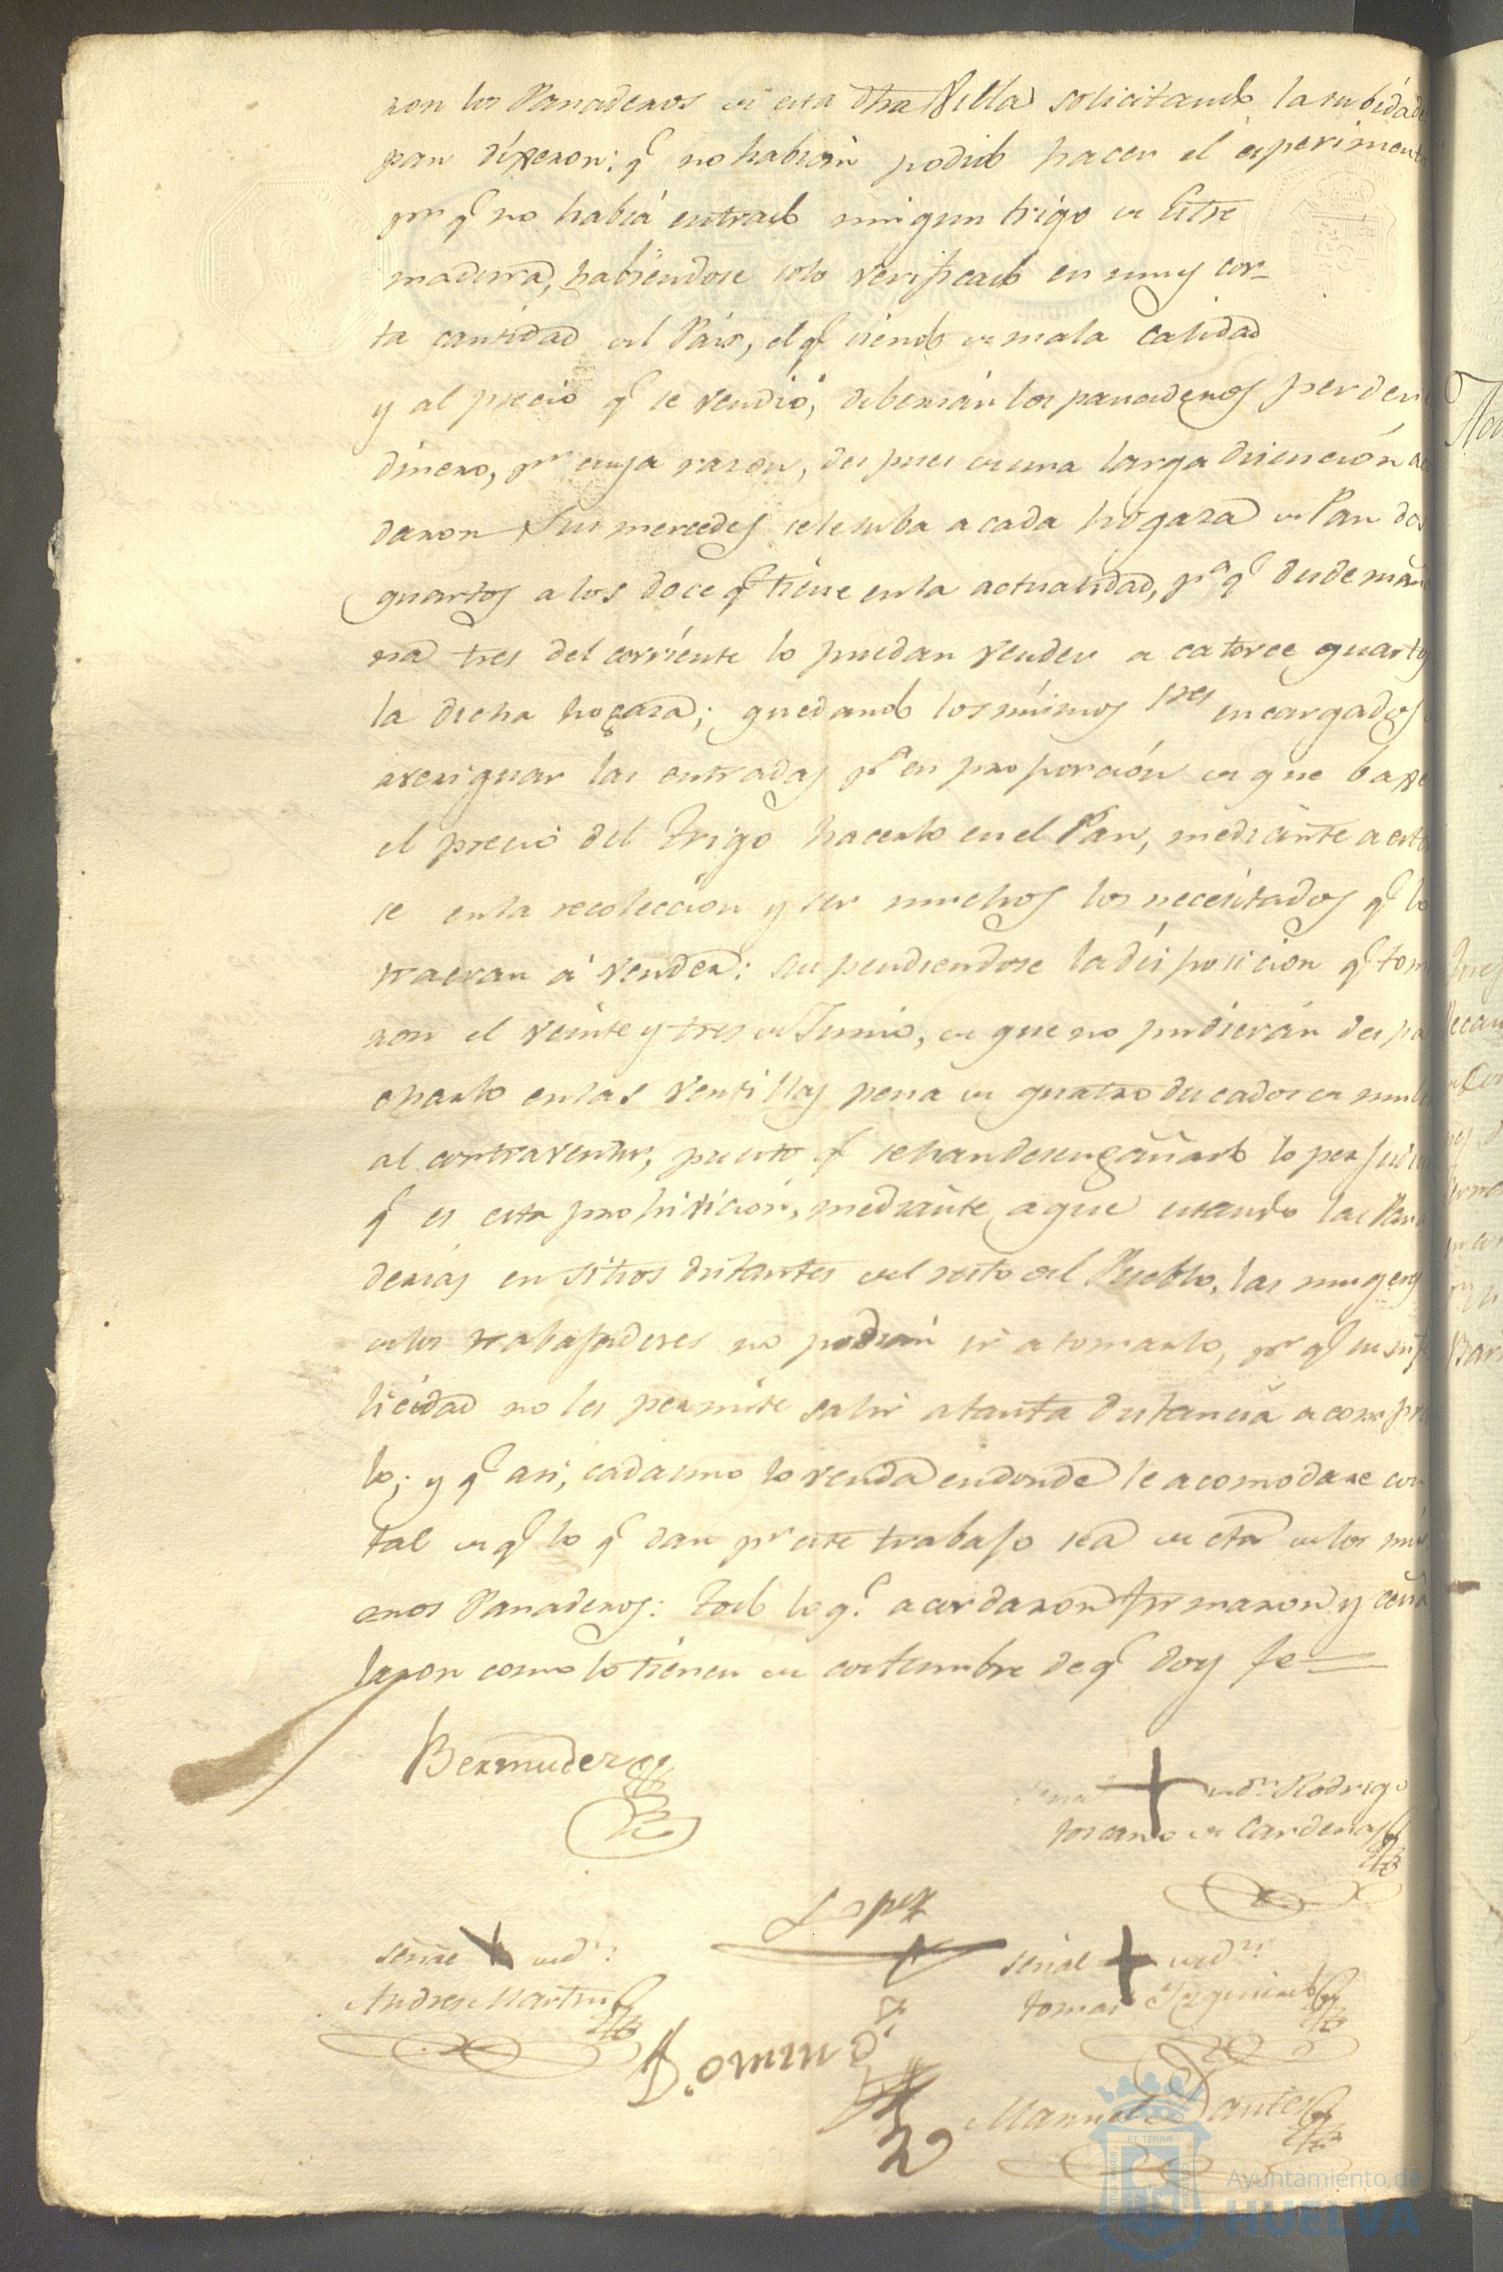 ron los Panaderos de esta dha Villa solicitando la subida de
pan dixeron: q̃ no habian podido hacer el experiment
pr q̃ no habiá entrado ningun trigo de Estre
madura, habiendose solo verificado en muy cor-
ta cantidad del Pais, el q̃ siendo de mala calidad
y al precio q̃ se vendió, deberián los panaderos perder
dinero, pr cuya razon, despues de una larga discución a
daron Sus mercedes se le suba a cada hogaza de Pan dos
quartos a los doce q̃ tiene en la actualidad, pa q̃ desde maña
na tres del corriente lo puedan vender a catorce quartos
la dicha hogaza; quedando los mismos sres encargados
averiguar las entradas pa en proporción de que baxe
el precio del trigo hacerlo en el Pan, mediante a esta
se en la recolección y ser muchos los necesitados q̃ lo
traeran á vender: suspendiendose la disposicion q̃ tom
ron el veinte y tres de Junio, de que no pudierán despa
charlo en las ventillas pena de quatro ducados de mul
al contraventor, puesto q̃ se han desengañado lo perjudi
q̃ es esta prohivición, mediante a que estando las Pana
derias en sitios distantes del resto del Pueblo, las mugeres
de los trabajadores no podian ir a tomarlo, pr q̃ su
licidad no les permite salir a tanta distancia a compr
lo; y q̃ asi, cada uno lo venda en donde le acomodare con
tal de q̃ lo q̃ dan pr este trabajo sea de cta de los mis
mos Panaderos: todo lo q̃ acordaron firmaron y ceña
laron como lo tienen de costumbre de q̃ doy fe
Bermudez
+ de dn Rodrigo
toscano de Cardenas
Lopez
señal + de dn
Andres Martin
señal + de dn
tomas Yzquierdo
Manuel
ET TERRÆ
Ayuntamiento de
HUELVA